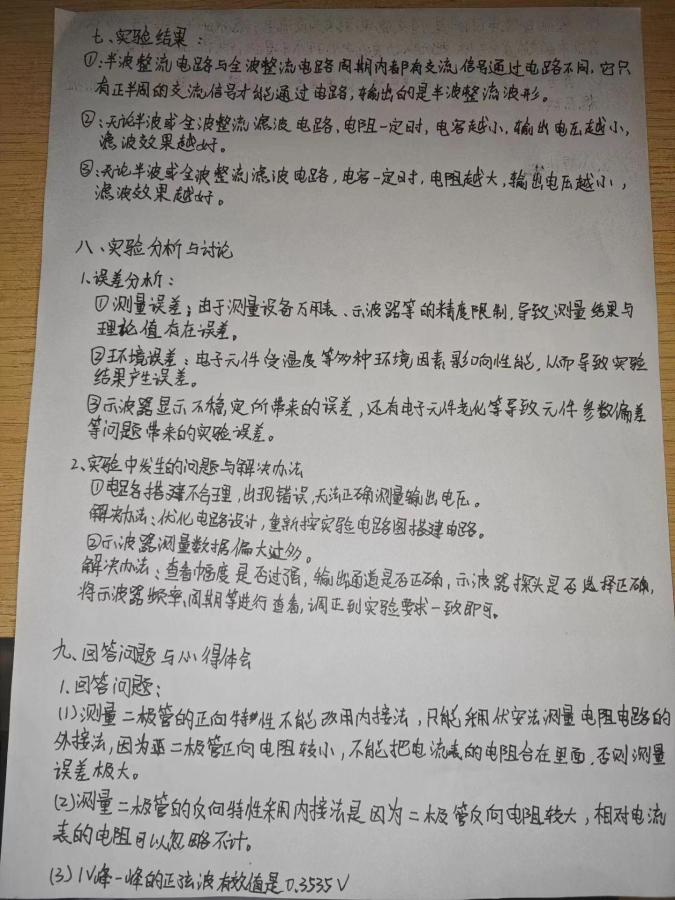 七、实验结果：
①:半波整流电路与全波整流电路周期内都有交流信号通过电路不同,它只
有正半周的交流信号才能通过电路,输出的是半波整流波形。
②:无论半波或全波整流滤波电路,电阻一定时,电容越小,输出电压越小,
滤波效果越好。
③:无论半波或全波整流滤波电路,电容一定时,电阻越大,输出电压越小,
滤波效果越好。
八、实验分析与讨论
1.误差分析：
①测量误差；由于测量设备万用表、示波器等的精度限制,导致测量结果与
理论值存在误差。
②环境误差：电子元件受温度等多种环境因素影响性能,从而导致实验
结果产生误差。
③示波器显示不稳定所带来的误差,还有电子元件老化等导致元件参数偏差
等问题带来的实验误差。
2、实验中发生的问题与解决办法
①电路搭建不合理,出现错误,无法正确测量输出电压。
解决办法：优化电路设计,重新按实验电路图搭建电路。
②示波器测量数据偏大过多。
解决办法：查看幅度是否过强,输出通道是否正确,示波器探头是否选择正确,
将示波器频率、周期等进行查看,调正到实验要求一致即可。
九、回答问题与心得体会
1.回答问题；
(1)测量二极管的正向特性不能改用内接法,只能采用伏安法测量电阻电路的
外接法,因为二极管正向电阻较小,不能把电流表的电阻台在里面,否则测量
误差极大。
(2)测量二极管的反向特性采用内接法是因为二极管反向电阻较大,相对电流
表的电阻可以忽略不计。
(3)1V峰-峰的正弦波有效值是0.3535V